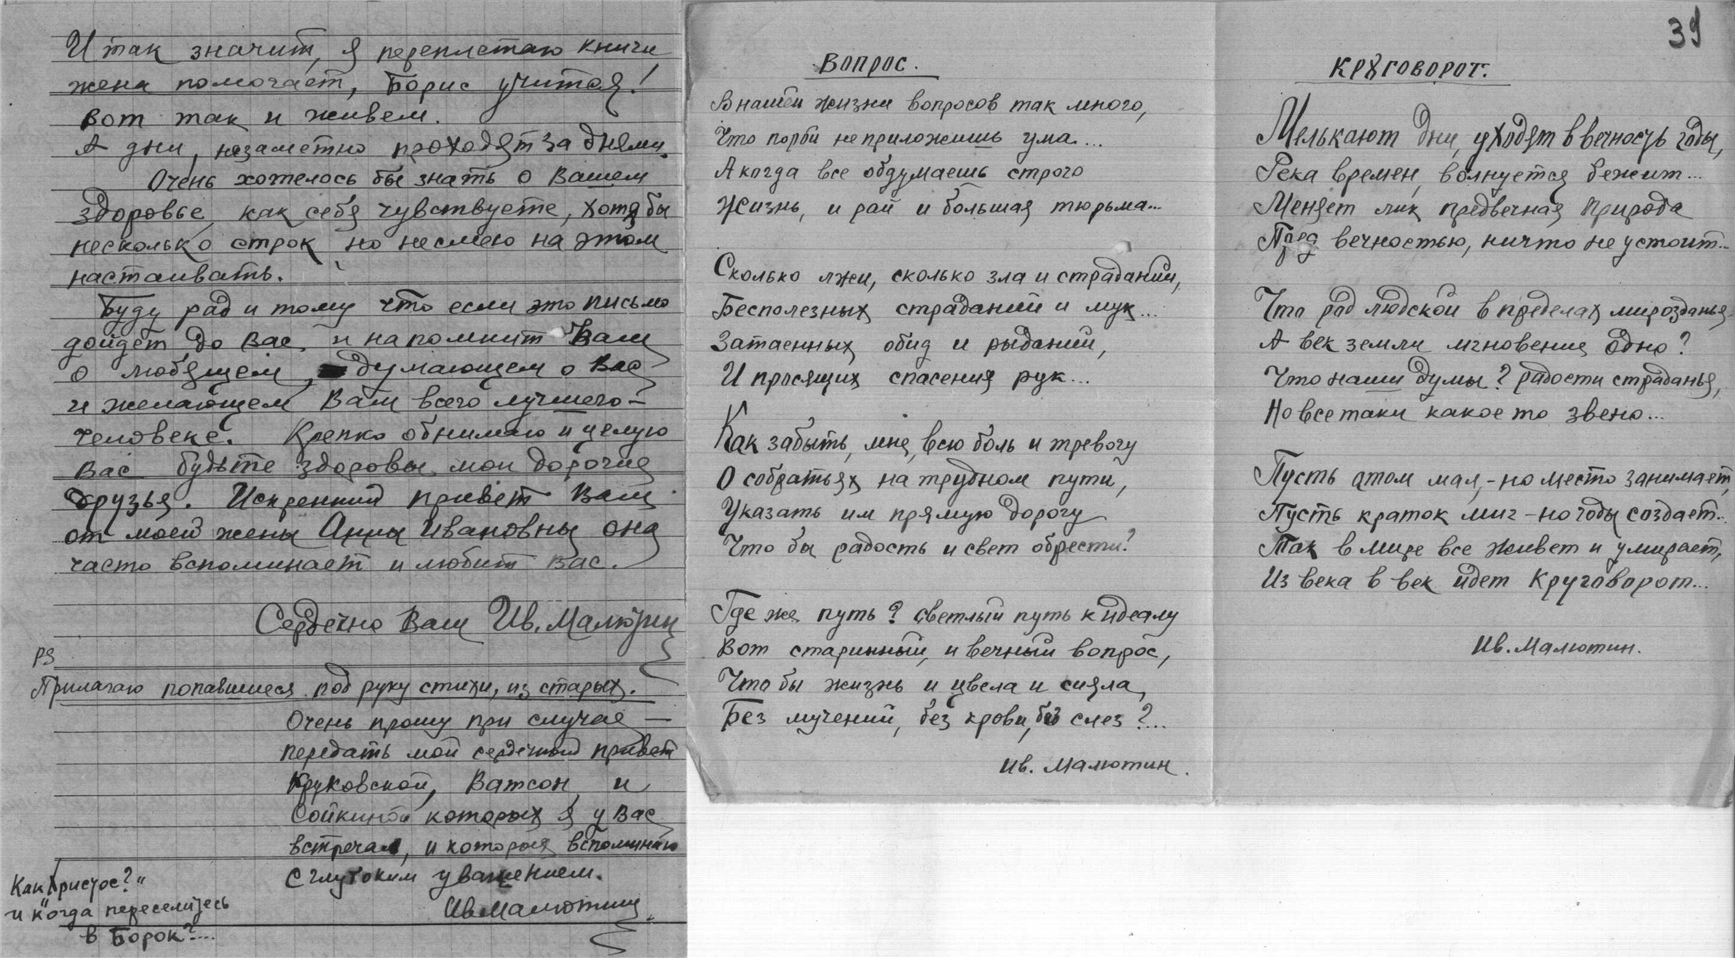 И так значит, я переплетаю книги
жена помогает, Борис учится!
Вот так и живем.
А дни, незаметно проходят за днями.
Очень хотелось бы знать о Вашем
здоровье, как себя чувствуете, хотя бы
несколько строк, но не смею на этом
настаивать.
Буду рад и тому что если это письмо
дойдет до Вас, и напомнит Вам
о любящем, думающем о Вас
и желающем Вам всего лучшего –
человеке. Крепко обнимаю и целую
Вас будьте здоровы мои дорогие
друзья. Искренний привет Вам
от моей жены Анны Ивановны она
часто вспоминает и любит Вас.
Сердечно Ваш Ив. Малютин
PS
Прилагаю попавшиеся под руку стихи, из старых.
Очень прошу при случае –
передать мой сердечный привет
Круковской, Ватсон, и
Сойкиной которых я у Вас
встречал, и которых вспоминаю
с глубоким уважением.
Ив Малютин
Как "Христос?"
и когда переселитесь
в Борок?...
Вопрос.
В нашей жизни вопросов так много,
Что порой не приложишь ума...
А когда все обдумаешь строго
Жизнь, и рай и большая тюрьма...
Сколько лжи, сколько зла и страданий,
Бесполезных страданий и мук...
Затаенных обид и рыданий,
И просящих спасения рук...
Как забыть, мне, всю боль и тревогу
О собратьях на трудном пути,
Указать им прямую дорогу
Что бы радость и свет обрести?
Где же путь? светлый путь к идеалу
Вот старинный, и вечный вопрос,
Что бы жизнь и цвела и сияла,
Без мучений, без крови, без слез?...
Ив. Малютин.
39
Круговорот.
Мелькают дни, уходят в вечность годы,
Река времен, волнуется бежит...
Меняет лик предвечная природа
Пред вечностью, ничто не устоит...
Что род людской в пределах мирозданья
А век земли мгновение одно?
Что наши думы? радости страданья,
Но все таки какое то звено...
Пусть атом мал, – но место занимает
Пусть краток миг – но годы создает...
Так в мире все живет и умирает,
Из века в век идет Круговорот...
Ив. Малютин.